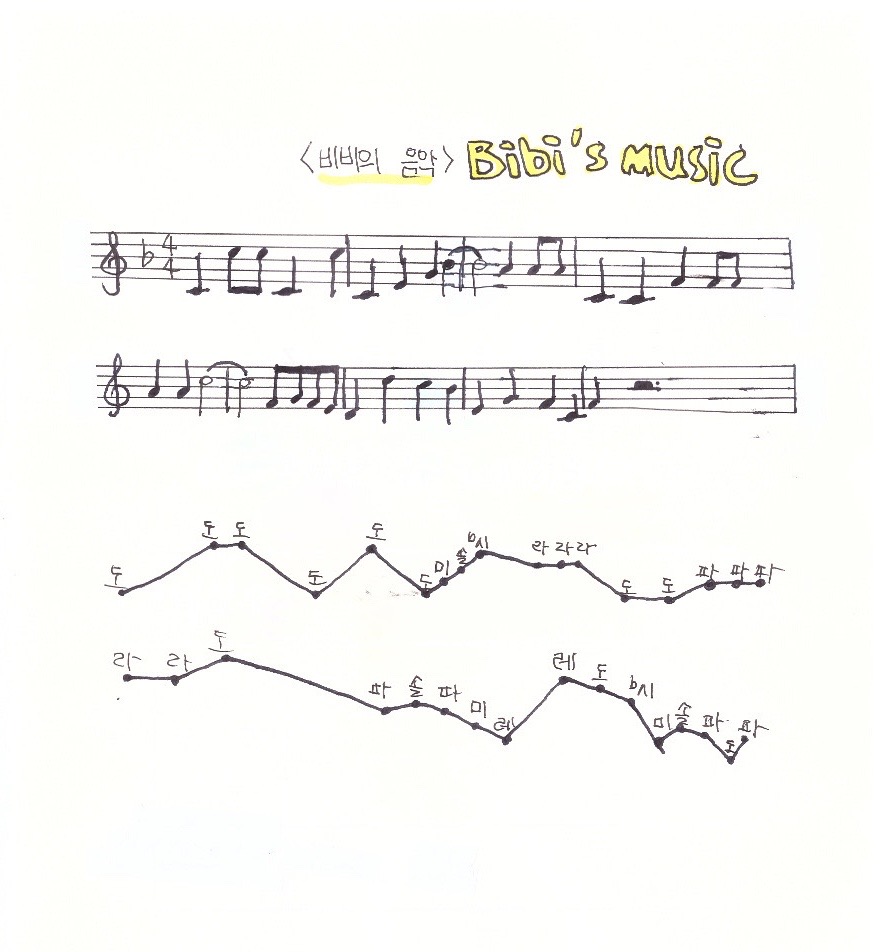 <비비의 음악> Bibi's music
4
4
도 도 도 도 도 도 미 솔 b시 라 라 라 도 도 파 파 파
라 라 도 파 솔 파 미 레 레 도 b시 미 솔 파 도 파